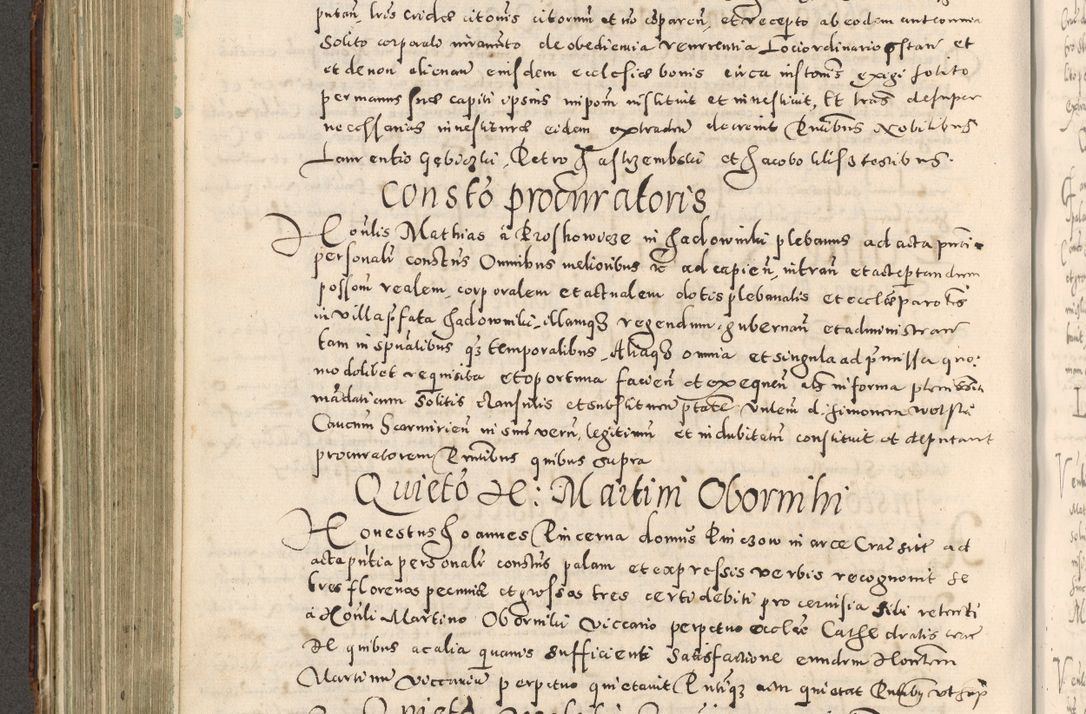 putan, lris cridae citonis citorum et no comparen, et recepto ab eodem ante omnia
Solito corporali iuramento de obedientia reverentia Loci ordinario pstan et
et de non alienan eiusdem ecclesiae bonis circa instonis exigi solito
per manus suae capiti ipsius impom instituit et investivit, Et lras desuper
necessarias investiturae eidem extraden decrevit Pntibus Nobilibus
Laurentio Gębiczki, Petro Jastrzembski et Jacobo testibus.
Consto procuratoris
Honlis Mathias a Proskowicze in Jadowniki plebanus ad acta pntia
personalr constus Omnibus melioribus etc ad capien, intran et acceptandum
possom realem, corporalem et actualem dotis plebanalis et ecclae paroklis
in villa pfata Jadowniki, illamq3 regendum, gubernan et administran
tam in spualibus q3 temporalibus, Aliaq3 omnia et singula ad pmissa quo:
modolibet requisita et oportuna facien et exequen als in forma plenissima
mandatium solitis clausulis et substituen ptate vnlem d. Simonem Wolski
Canonm Scarmirien in suis verum, legitimum et indubitatum constituit et deputavit
procuratorem Pntibus quibus supra
Quieto H: Martini Obornihi
Honestus Joannes Pincerna domus Pinczow in arce Crac site ad
acta pntia personalr constus palam et expressis verbis recognovit se
tres florenos pecuniae et grossos tres certi debiti pro cervisia sibi retenti
a Honli Martino Oborniki viccario perpetuo ecclae Cathedralis Crac
De quibus ac alia quavis sufficienti satisfactione eundem Honlem
Martinum viccarium perpetuo quietavit Pntiq3 actu quietat Pntibus vt sup